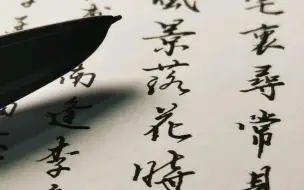 宅裏尋常見
風景落花時
南逢李